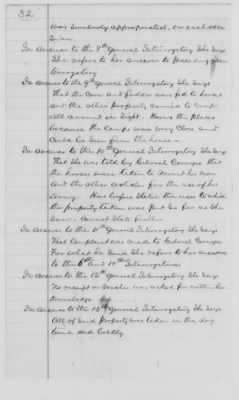 32
was similarly appropriated, on each
In answer to the 8th General Interrogatory She Says
She refers to her answer to Preceding Interrogatory
In answer to the 9th General Interrogatory She Says
That the Corn and fodder were fed to horses
and the other Property carried to Camp
All around in Sight. Knows the Places
because the Camps were very Close and
Could be seen from the house
In answer to the 10th General Interrogatory She Says
That She was told by Colonel
that the horses were taken to
And the other articles for the use of the
Army. Has before States the uses to which
the property taken was put So far as She
knows Cannot State further
In answer to 11th General Interrogatory She Says
That Complaint was made to Federal
For what he said She refers to her answers
to the 6th and 10th Interrogatories
In Answer to the 12th General Interrogatory She Says
No receipt or voucher was asked for within her
Knowledge
In Answer to the 13th General Interrogatory She Says
All of Said Property was taken in the day
time and